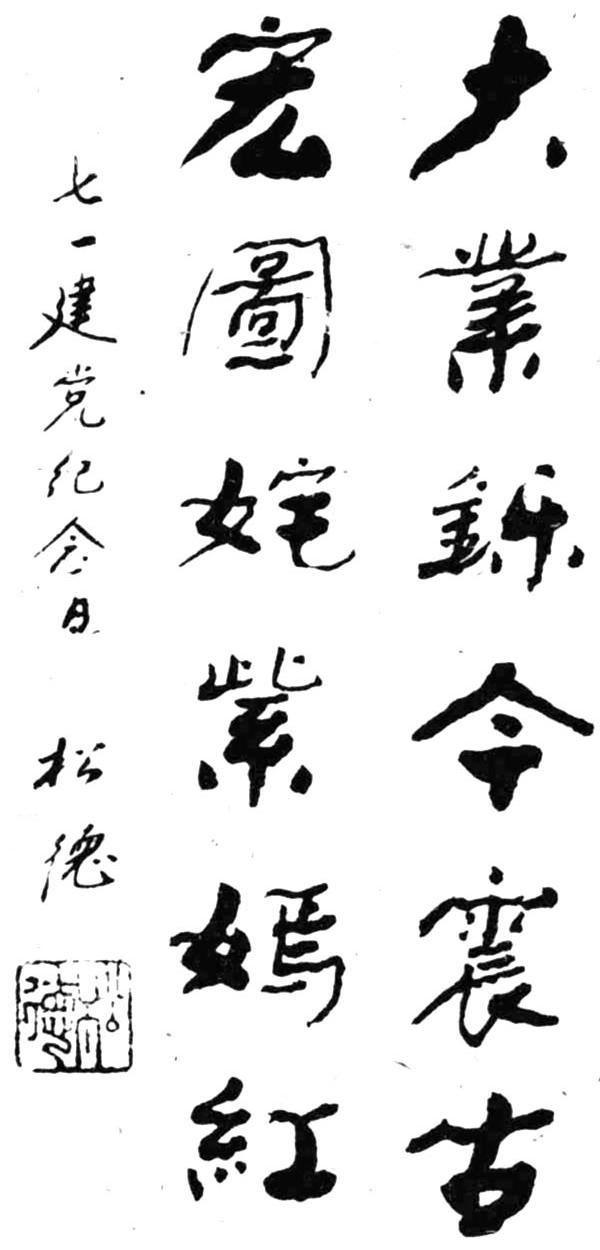 大業铄今震古
宏圖姹紫嫣紅
七一建党纪念日 松德
松德